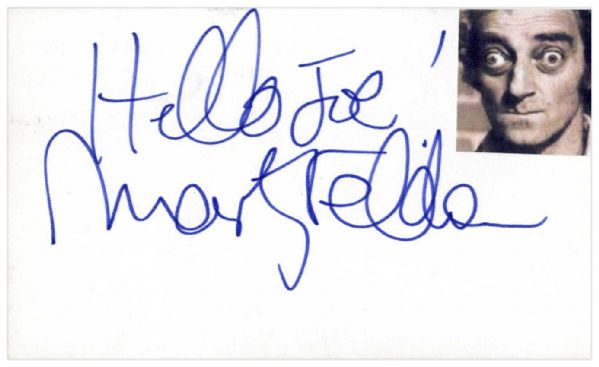 Hello Joe!
Marty Feldman